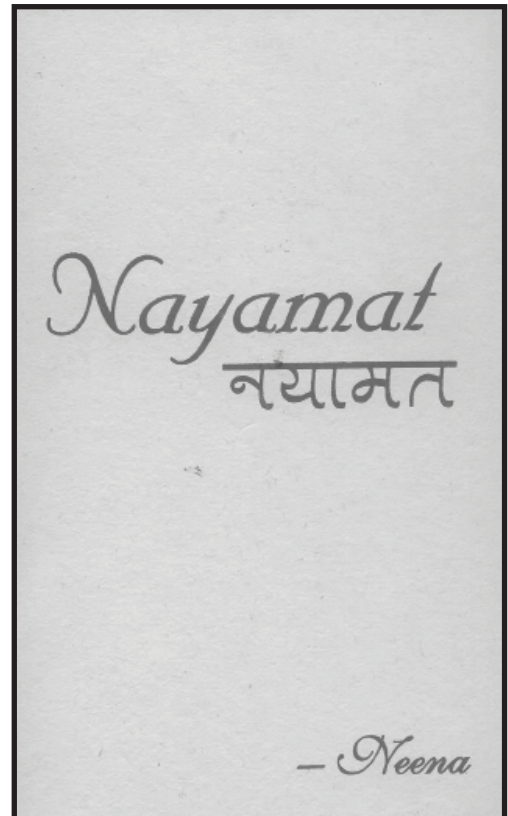 Nayamat
नयामत
– Neena